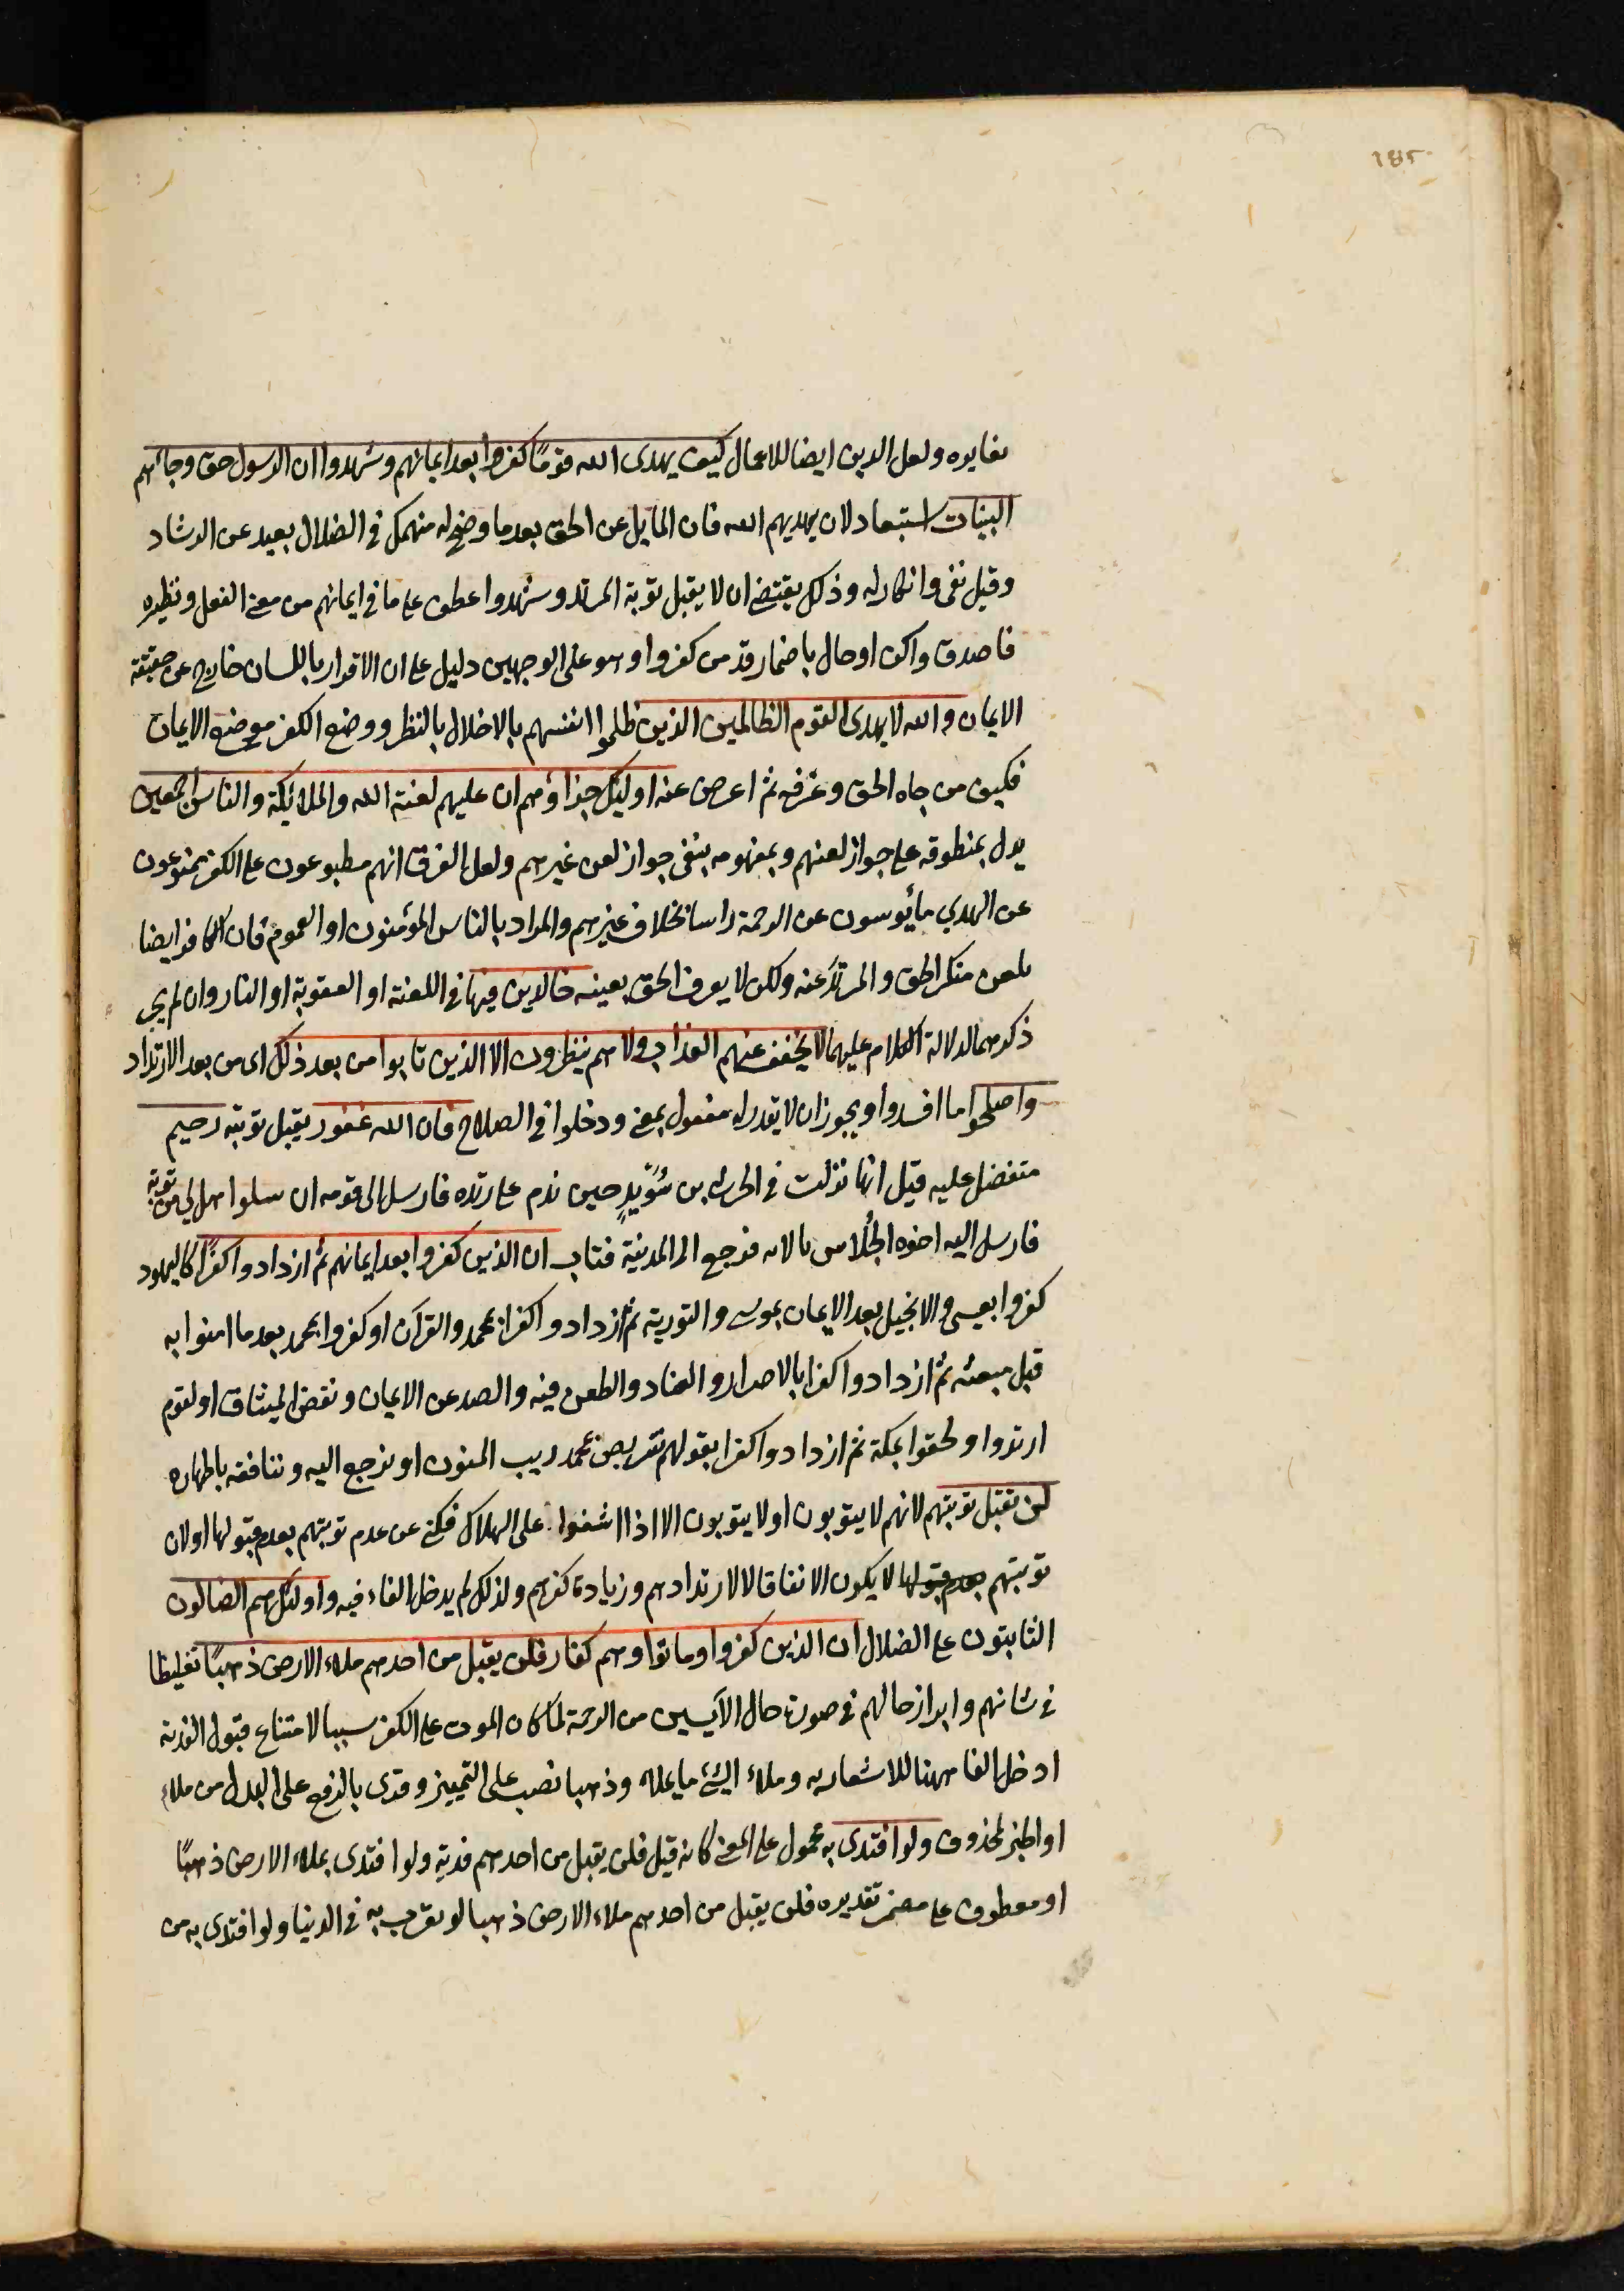 185
يغايره ولعل الدين ايضا للاعمال كيف يهدى الله قومًا كفروا بعد ايمانهم وشهدوا ان الرسول حق وجاءهم
البينات استبعاد لان يهديهم الله فان المايل عن الحق بعد ما وضح له منهمك فى الضلال بعيد عن الرشاد
وقيل نفى وانكار له وذلك يقتضى ان لا يقبل توبة المرتد وشهدوا عطف على ما فى ايمانهم من معنى الفعل ونظيره
فاصدق واكن او حال باضمار قد من كفروا وهو على الوجهين دليل على ان الاقرار باللسان خارج عن حقيقة
الايمان والله لا يهدى القوم الظالمين الذين ظلموا انفسهم بالاخلال بالنظر ووضع الكفر موضع الايمان
فكيف من جاه الحق وعرفه ثم اعرض عنه اوليك جزاؤهم ان عليهم لعنة الله والملائكة والناس اجمعين
يدل بمنطوقه على جواز لعنهم وبمفهومه ينفى جواز لعن غيرهم ولعل الفرق انهم مطبوعون على الكفر ممنوعون
عن الهدي مأيوسون عن الرحمة راسا بخلاف غيرهم والمراد بالناس المؤمنون او العموم فان الكافر ايضا
يلعن منكر الحق والمرتد عنه ولكن لا يعرف الحق بعينه خالدين فيها فى اللعنة او العقوبة او النار وان لم يجر
ذكرهما لدلالة الكلام عليهما لا يخفف عنهم العذاب ولا هم ينظرون الا الذين تابوا من بعد ذلك اى من بعد الارتداد
واصلحوا ما افسدوا ويجوز ان لا يقدر له مفعول بمعنى ودخلوا فى الصلاح فان الله غفور يقبل توبته رحيم
متفضل عليه قيل انها نزلت فى الحرث بن سُوَيدٍ حين ندم على ردته فارسل الى قومه ان سلوا هل لى من توبة
فارسل اليه اخوه الجُلاس بالاية فرجع الى المدينة فتاب ان الذين كفروا بعد ايمانهم ثم ازدادوا كفرًا كاليهود
كفروا بعيسى والانجيل بعد الايمان بموسى والتورية ثم ازدادوا كفرا بمحمد والقرآن او كفروا بمحمد بعد ما امنوا به
قبل مبعثه ثم ازدادوا كفرا بالاصرار والعناد والطعن فيه والصد عن الايمان ونقض الميثاق او لقوم
ارتدوا ولحقوا بمكة ثم ازدادوا كفرا بقولهم نتربص بمحمد ريب المنون او نرجع اليه وننافقه باظهاره
لن تقبل توبتهم لانهم لا يتوبون او لا يتوبون الا اذا اشفوا على الهلاك فكنى عن عدم توبتهم بعدم قبولها اولان
توبتهم بعدم قبولها لا يكون الا نفاقا لا لارتدادهم وزيادة كفرهم ولذلك لم يدخل الفاء فيه واولئك هم الضالون
الثابتون على الضلال ان الذين كفروا وماتوا وهم كفار فلن يقبل من احدهم ملاء الارض ذهبًا تغليظا
فى شانهم وابراز حالهم فى صورة حال الآيسين من الرحمة لما كان الموت على الكفر سببا لامتناع قبول الفدية
ادخل الفا ههنا للاشعار به وملاء الشئ ما يملاه وذهبا نصب على التمييز وقرى بالرفع على البدل من ملاء
او الخبر لمحذوف ولو افتدى به محمول على المعنى كانه قيل فلن يقبل من احدهم فدية ولو افتدى بملاء الارض ذهبًا
او معطوف على مضمر تقديره فلن يقبل من احدهم ملاء الارض ذهبا لو تقرب به فى الدنيا ولو افتدى به من